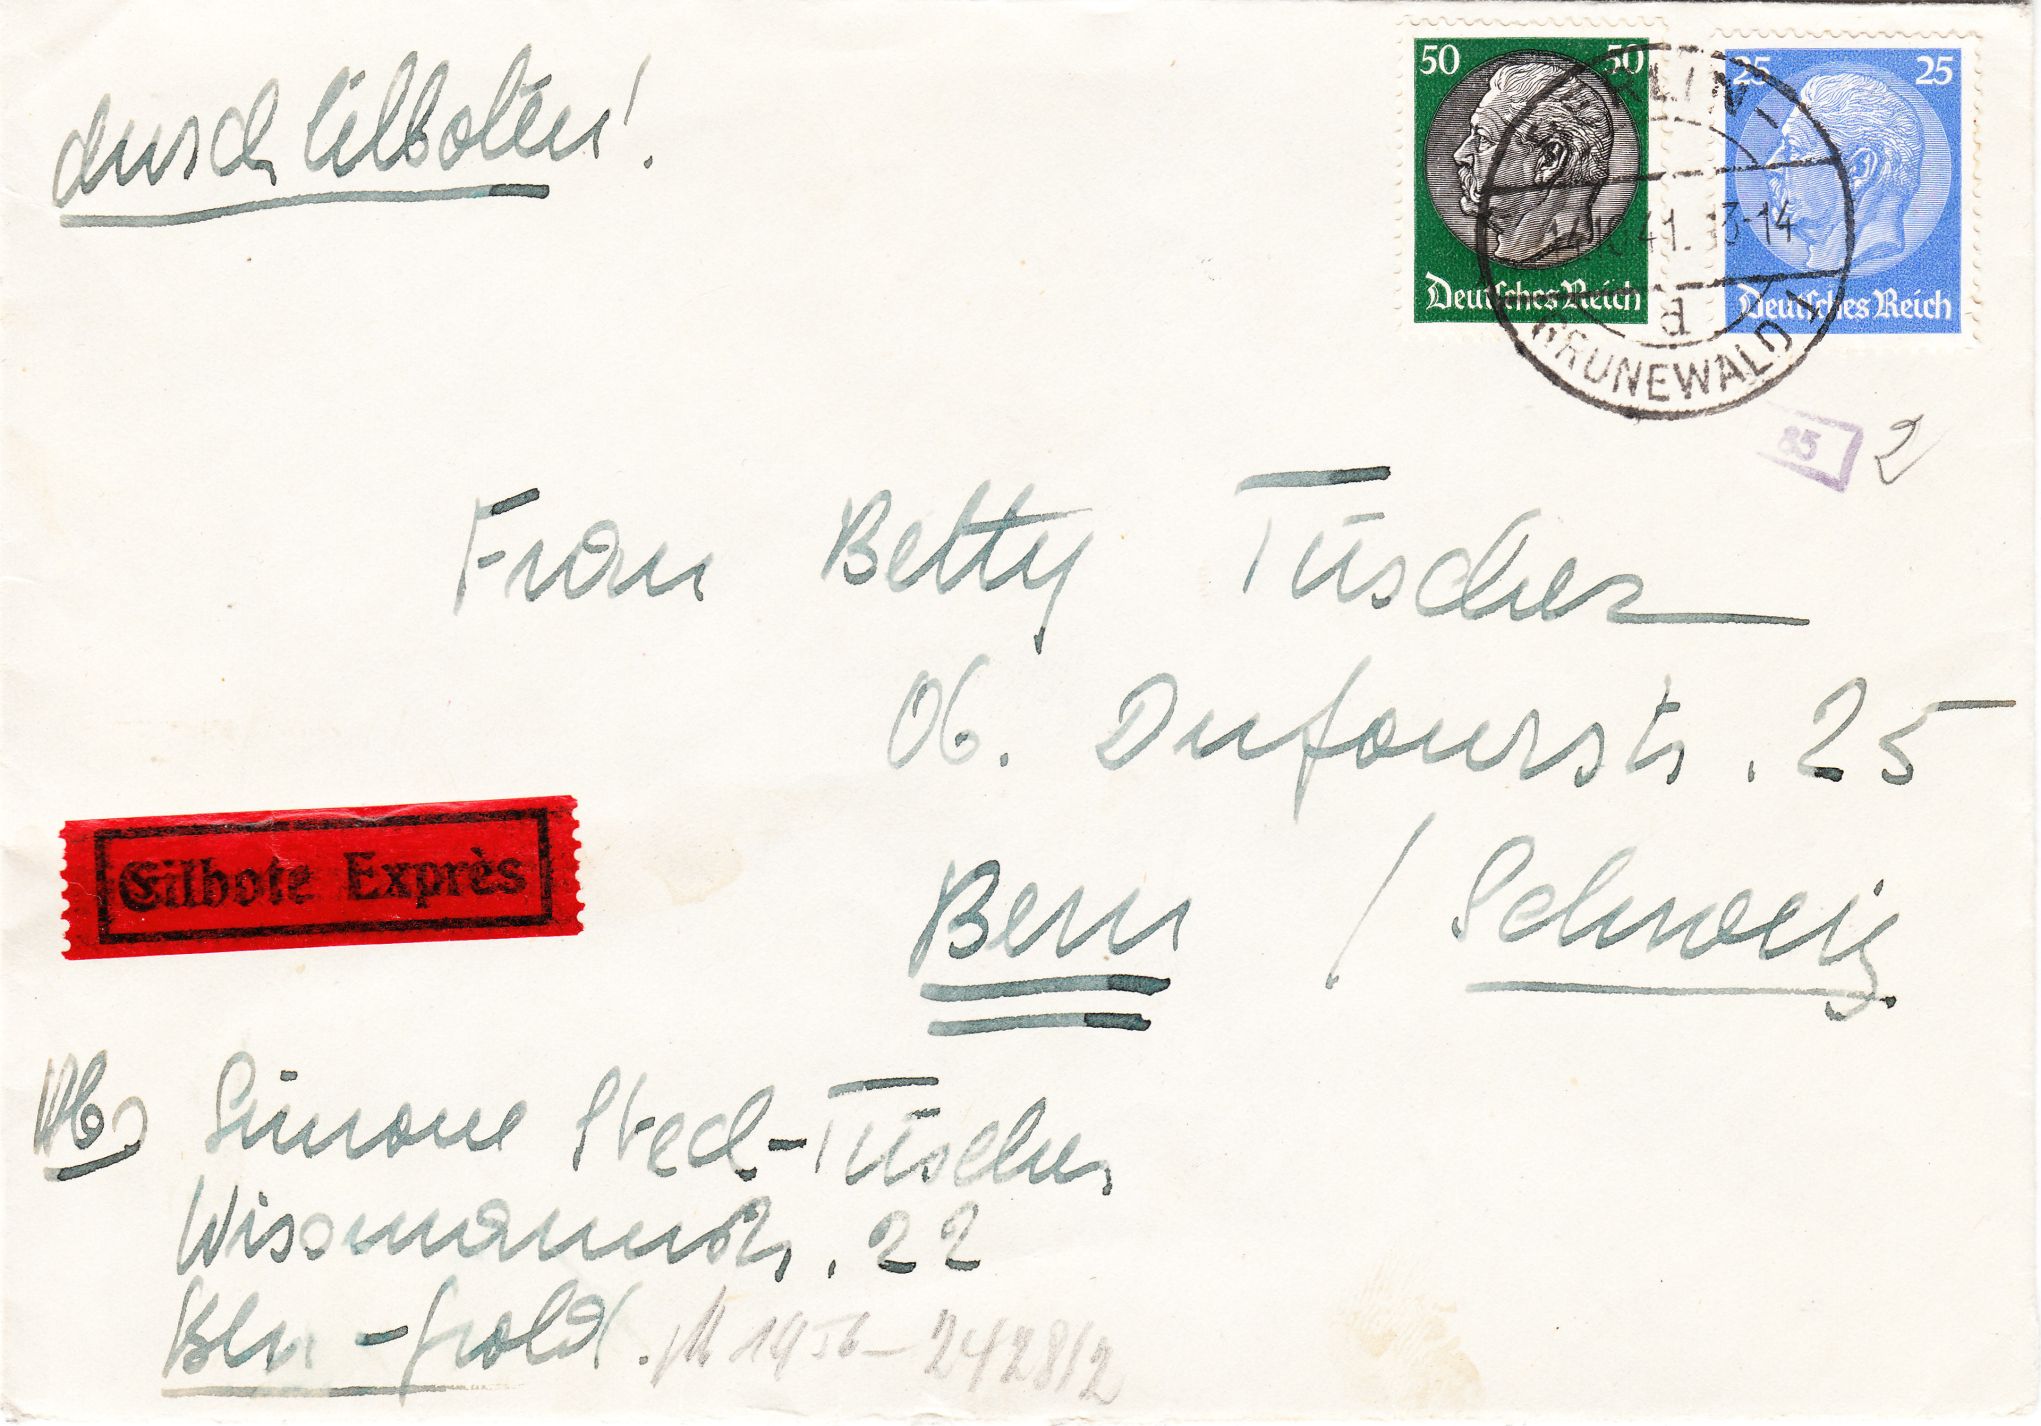 durch Eilboten!
50 50
Deutsches Reich
25 25
Deutsches Reich
BERLIN-
41. 13-14
GRUNEWALD 1
85
2
Frau Betty Tüscher
Ob. Dufourstr. 25
Bern / Schweiz
Eilbote Exprès
Abs Simone Stech-Tüscher
Wissmannstr. 22
Bln-